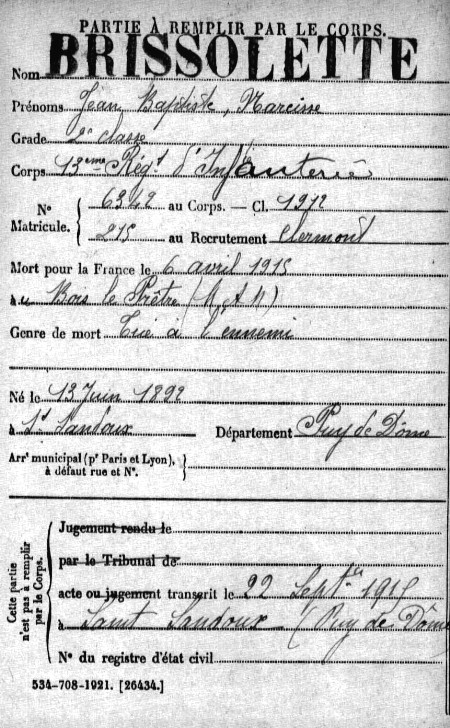 PARTIE À REMPLIR PAR LE CORPS.
Nom BRISSOLETTE
Prénoms Jean Baptiste, Narcisse
Grade 2e classe
Corps 13ème Régt d'Infanterie
No 6342 au Corps. — Cl. 1912
Matricule. 215 au Recrutement Clermont
Mort pour la France le 6 avril 1915
à u Bois le Prêtre (M & M)
Genre de mort Tué à l'ennemi
Né le 13 Juin 1892
à St Sandoux Département Puy de Dôme
Arrt municipal (pr Paris et Lyon),
à défaut rue et No.
Cette partie
n'est pas à remplir
par le Corps.
Jugement rendu le
par le Tribunal de
acte ou jugement transcrit le 22 Septbre 1915
à Saint Sandoux (Puy de Dôme
No du registre d'état civil
534-708-1921. [26434.]